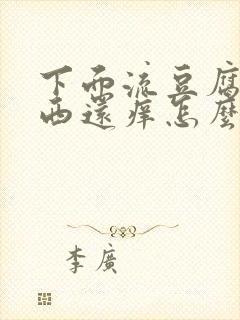 下面流豆腐
西還痒怎麼
李廣